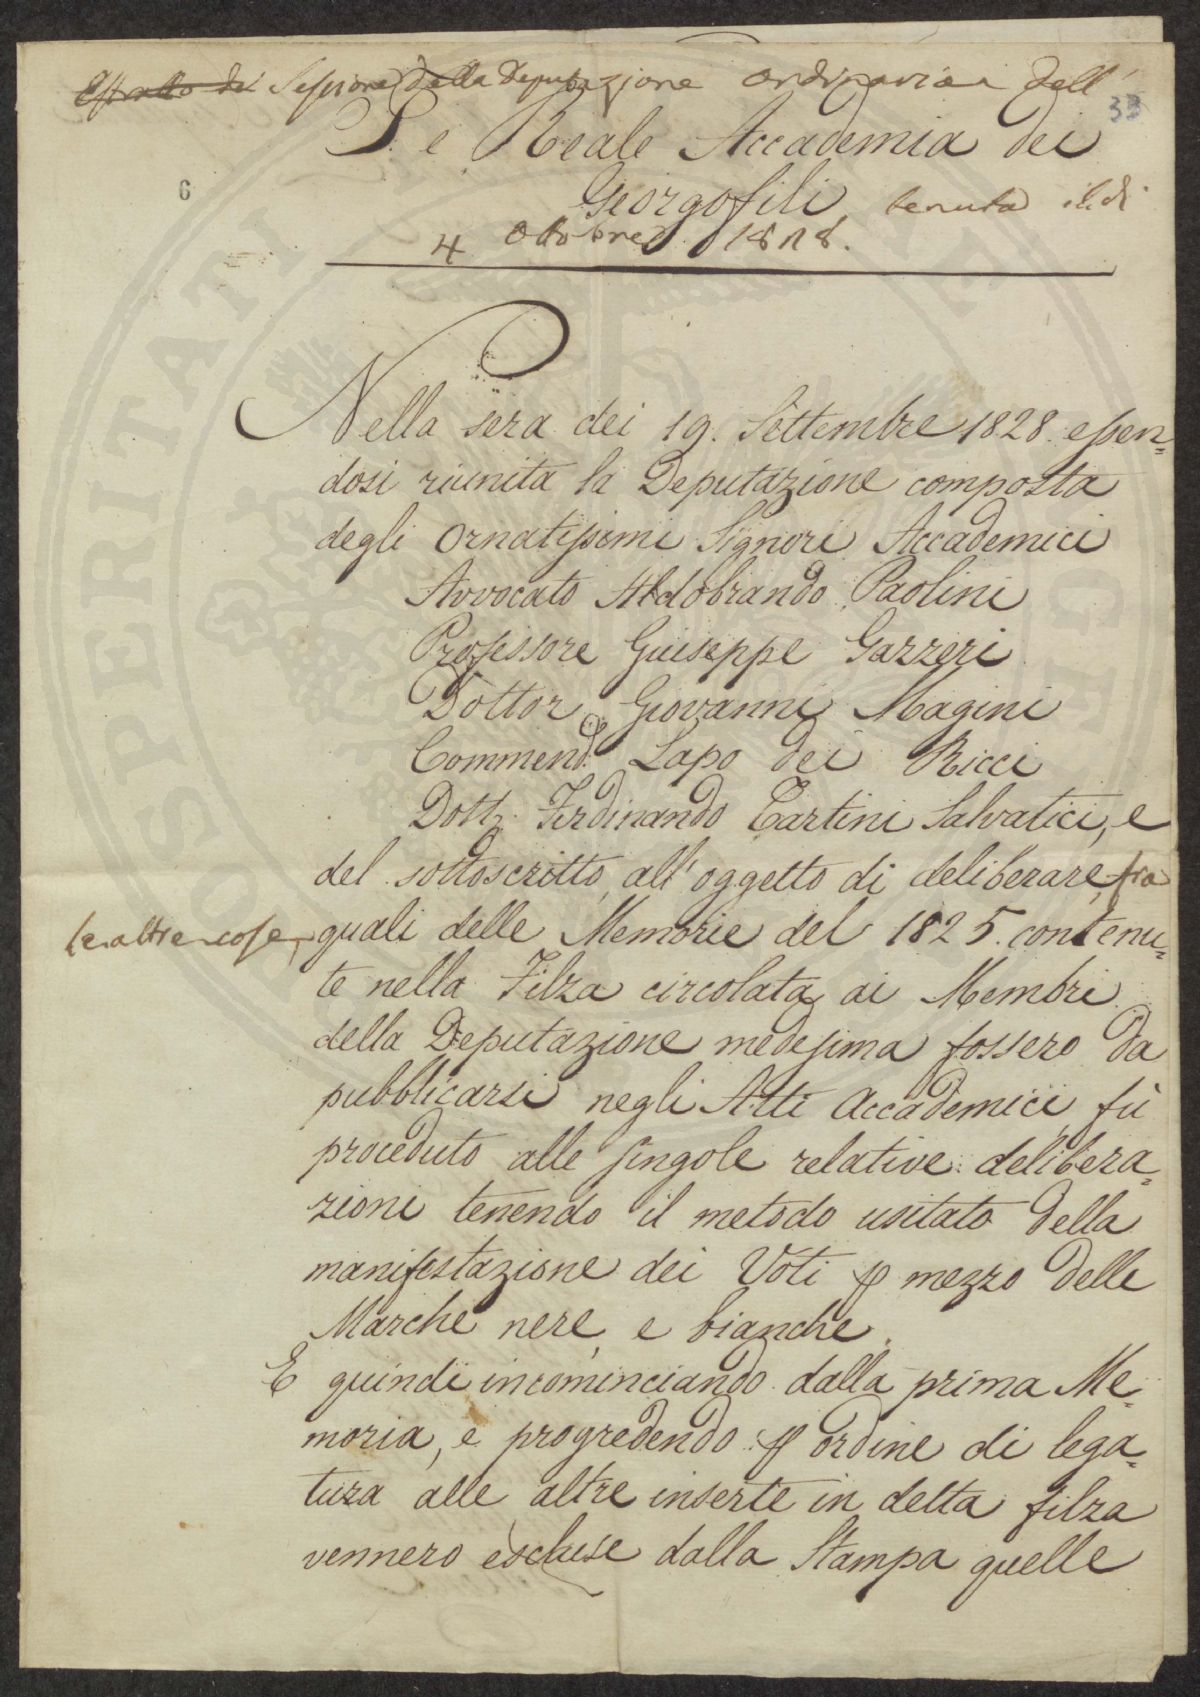 Estratto del Sessione della Deputazione ordinaria dell'
33
I. e Reale Accademia dei
6
Georgofili, tenuta il dì
4 Ottobre 1828.
Nella sera dei 19. Settembre 1828. essen=
dosi riunita la Deputazione composta
degli Ornatissimi Signori Accademici
Avvocato Aldobrando Paolini
Professore Giuseppe Gazzeri
Dottor Giovanni Magini
Commend.e Lapo dei Ricci
Dott. Ferdinando Tartini Salvatici, e
del sottoscritto all'oggetto di deliberare, fra
le altre cose, quali delle Memorie del 1825. contenu=
te nella Filza circolata ai Membri
della Deputazione medesima fossero da
pubblicarsi negli Atti Accademici, fù
proceduto alle singole relative delibera=
zioni tenendo il metodo usitato della
manifestazione dei Voti p mezzo delle
Marche nere, e bianche.
E quindi incominciando dalla prima Me=
moria, e progredendo p ordine di lega=
tura alle altre inserte in detta filza
vennero escluse dalla Stampa quelle
PROSPERITATI